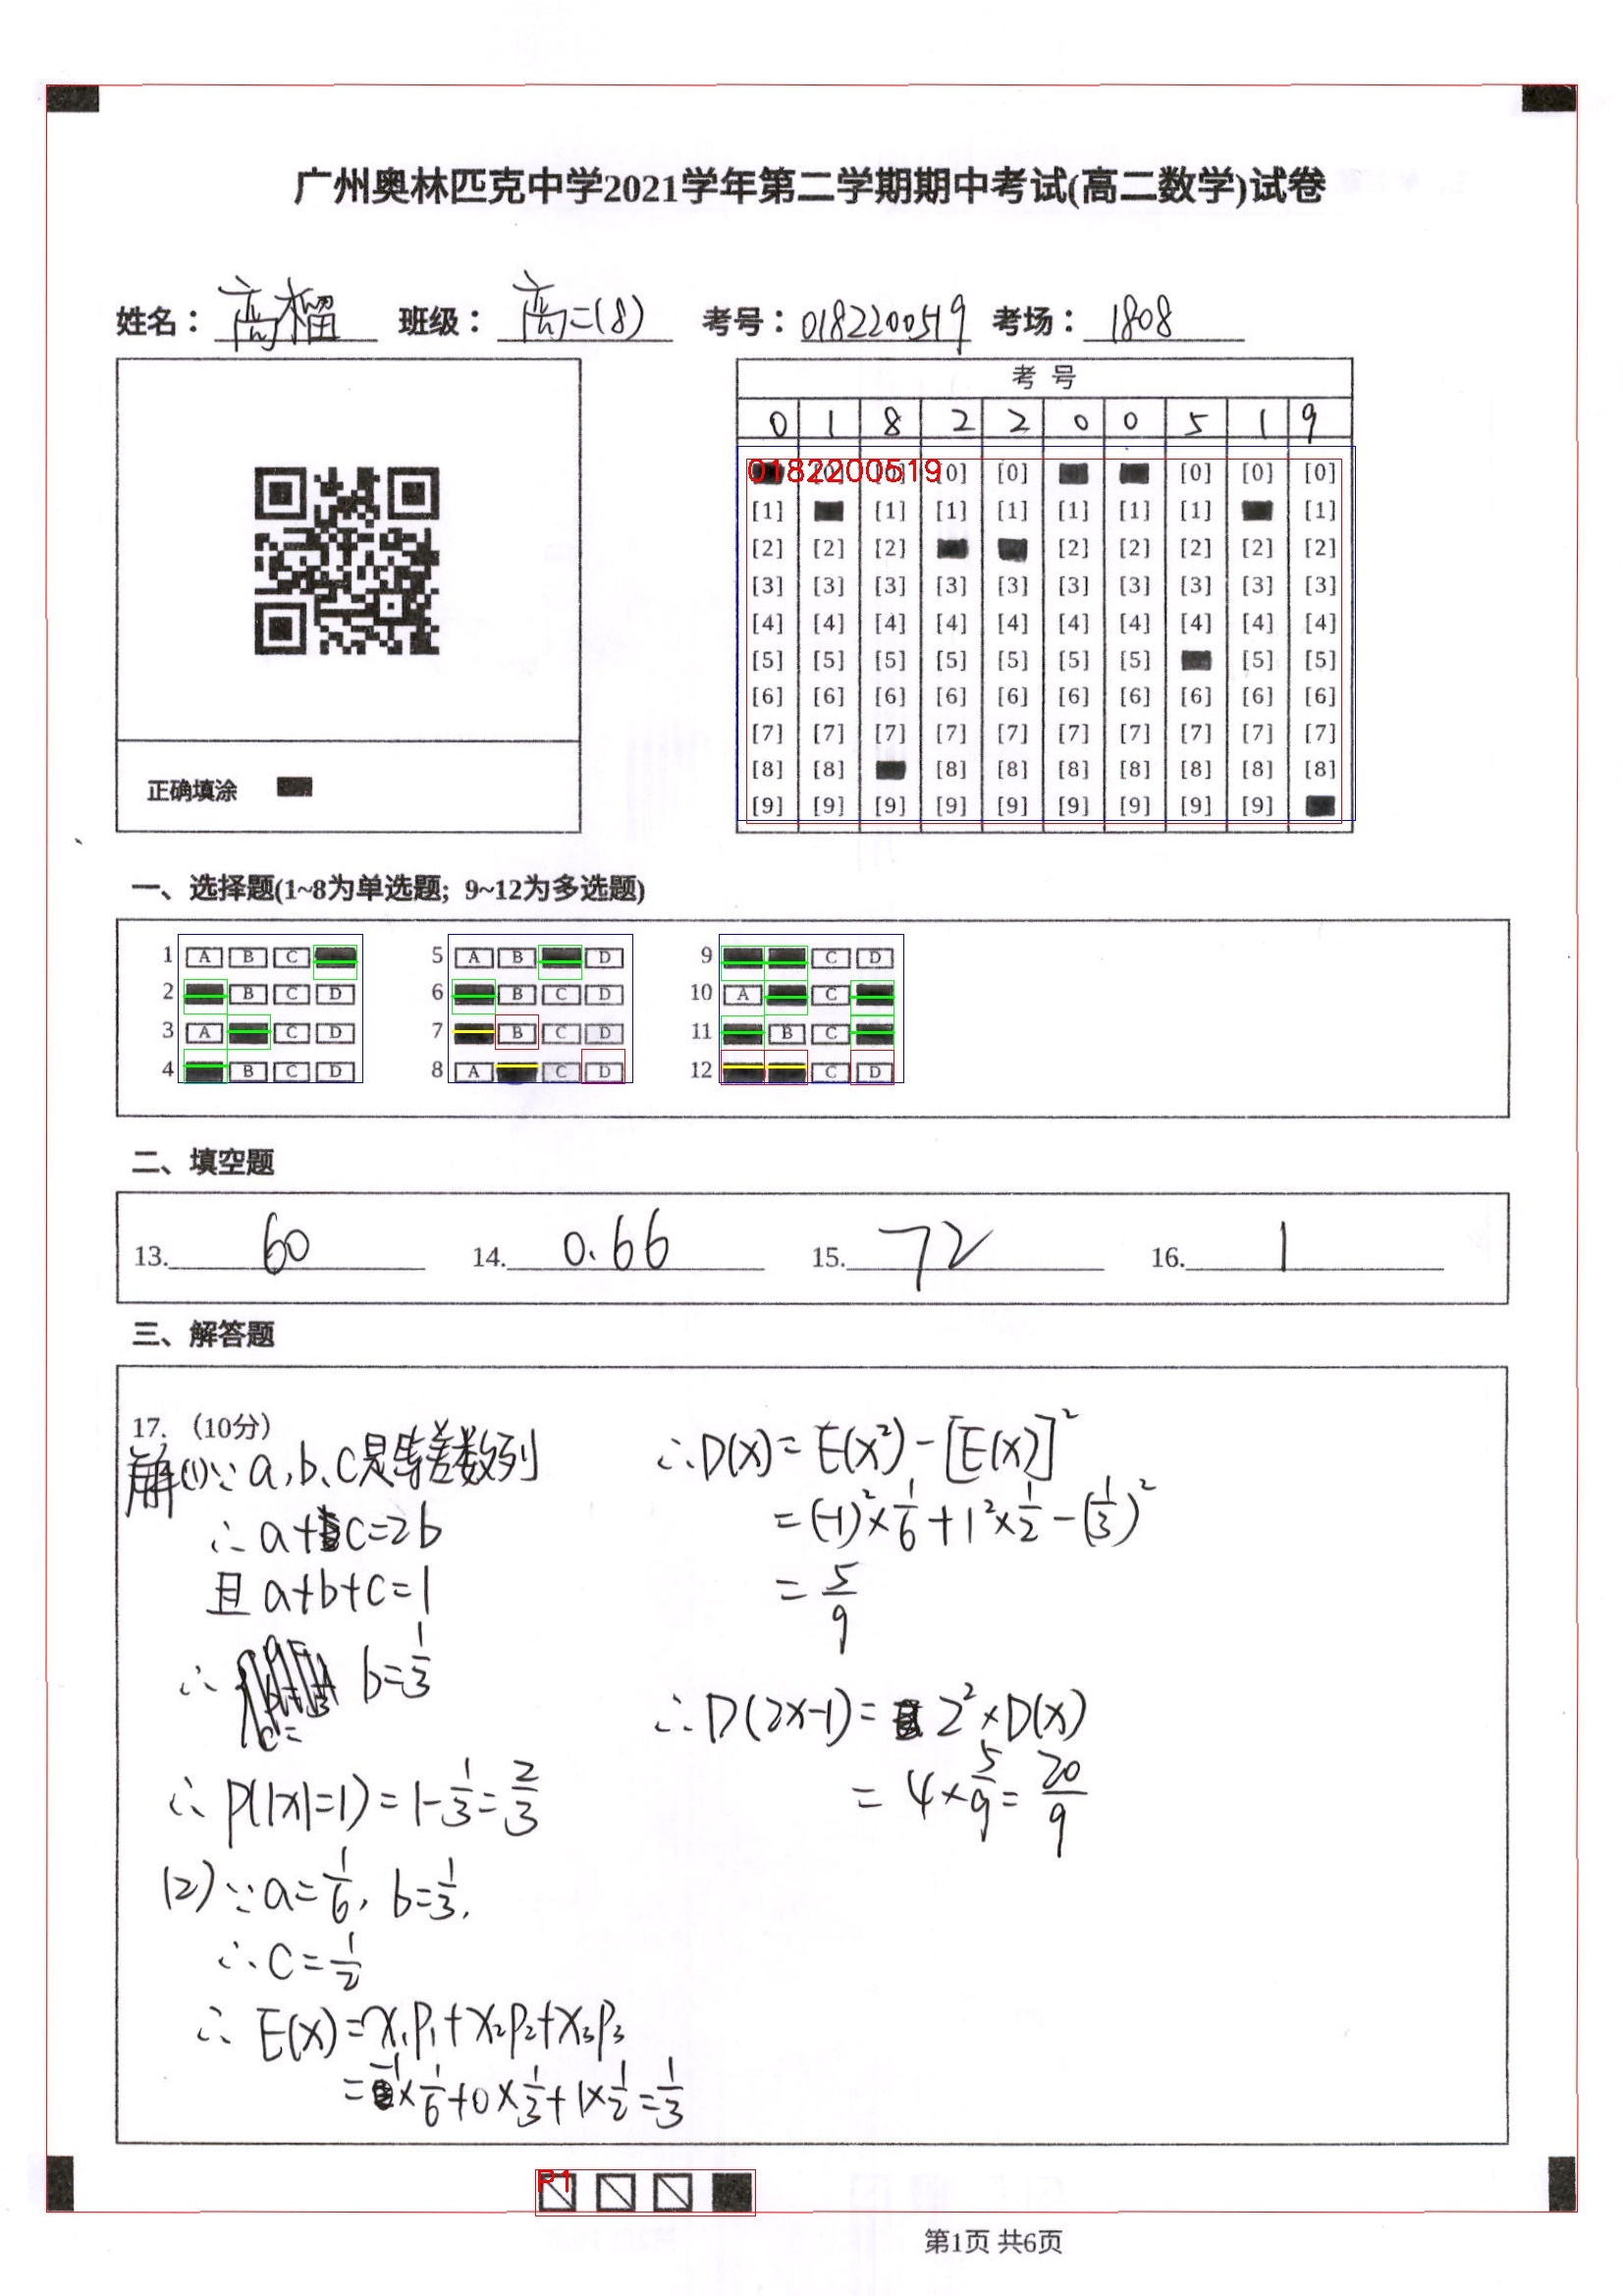 广州奥林匹克中学2021学年第二学期期中考试(高二数学)试卷
姓名： 高榴 班级： 高二(8) 考号： 0182200519 考场： 1808
考 号
0 1 8 2 2 0 0 5 1 9
0182200519 [0] [0] [0] [0] [0]
[1] [1] [1] [1] [1] [1] [1] [1]
[2] [2] [2] [2] [2] [2] [2] [2]
[3] [3] [3] [3] [3] [3] [3] [3] [3] [3]
[4] [4] [4] [4] [4] [4] [4] [4] [4] [4]
[5] [5] [5] [5] [5] [5] [5] [5] [5]
[6] [6] [6] [6] [6] [6] [6] [6] [6] [6]
[7] [7] [7] [7] [7] [7] [7] [7] [7] [7]
[8] [8] [8] [8] [8] [8] [8] [8] [8]
[9] [9] [9] [9] [9] [9] [9] [9] [9]
正确填涂
一、选择题(1~8为单选题; 9~12为多选题)
1 A B C 5 A B D 9 C D
2 B C D 6 B C D 10 A C
3 A C D 7 B C D 11 B C
4 B C D 8 A C D 12 C D
二、填空题
13. 60 14. 0.66 15. 72 16. 1
三、解答题
17. （10分）
解(1)∵a,b,c是等差数列
∴a+c=2b
且a+b+c=1
∴ b=1/3
∴P(|x|=1)=1-1/3=2/3
(2)∵a=1/6, b=1/3,
∴c=1/2
∴E(x)=x₁P₁+x₂P₂+x₃P₃
=-1×1/6+0×1/3+1×1/2=1/3
∴D(x)=E(x²)-[E(x)]²
=(-1)²×1/6+1²×1/2-(1/3)²
=5/9
∴D(2x-1)=2²×D(x)
=4×5/9=20/9
P1
第1页 共6页